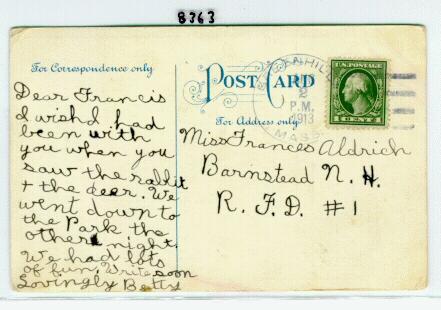 8363
For Correspondence only
POST CARD
For Address only
U.S. POSTAGE
P.M.
1913
MASS
Dear Francis
I wish I had
been with
you when you
saw the rabbit
+ the deer. We
went down to
the Park the
other night.
We had lots
of fun. Write soon
Lovingly Betty
Miss Frances Aldrich
Barnstead N. H.
R. F. D. #1